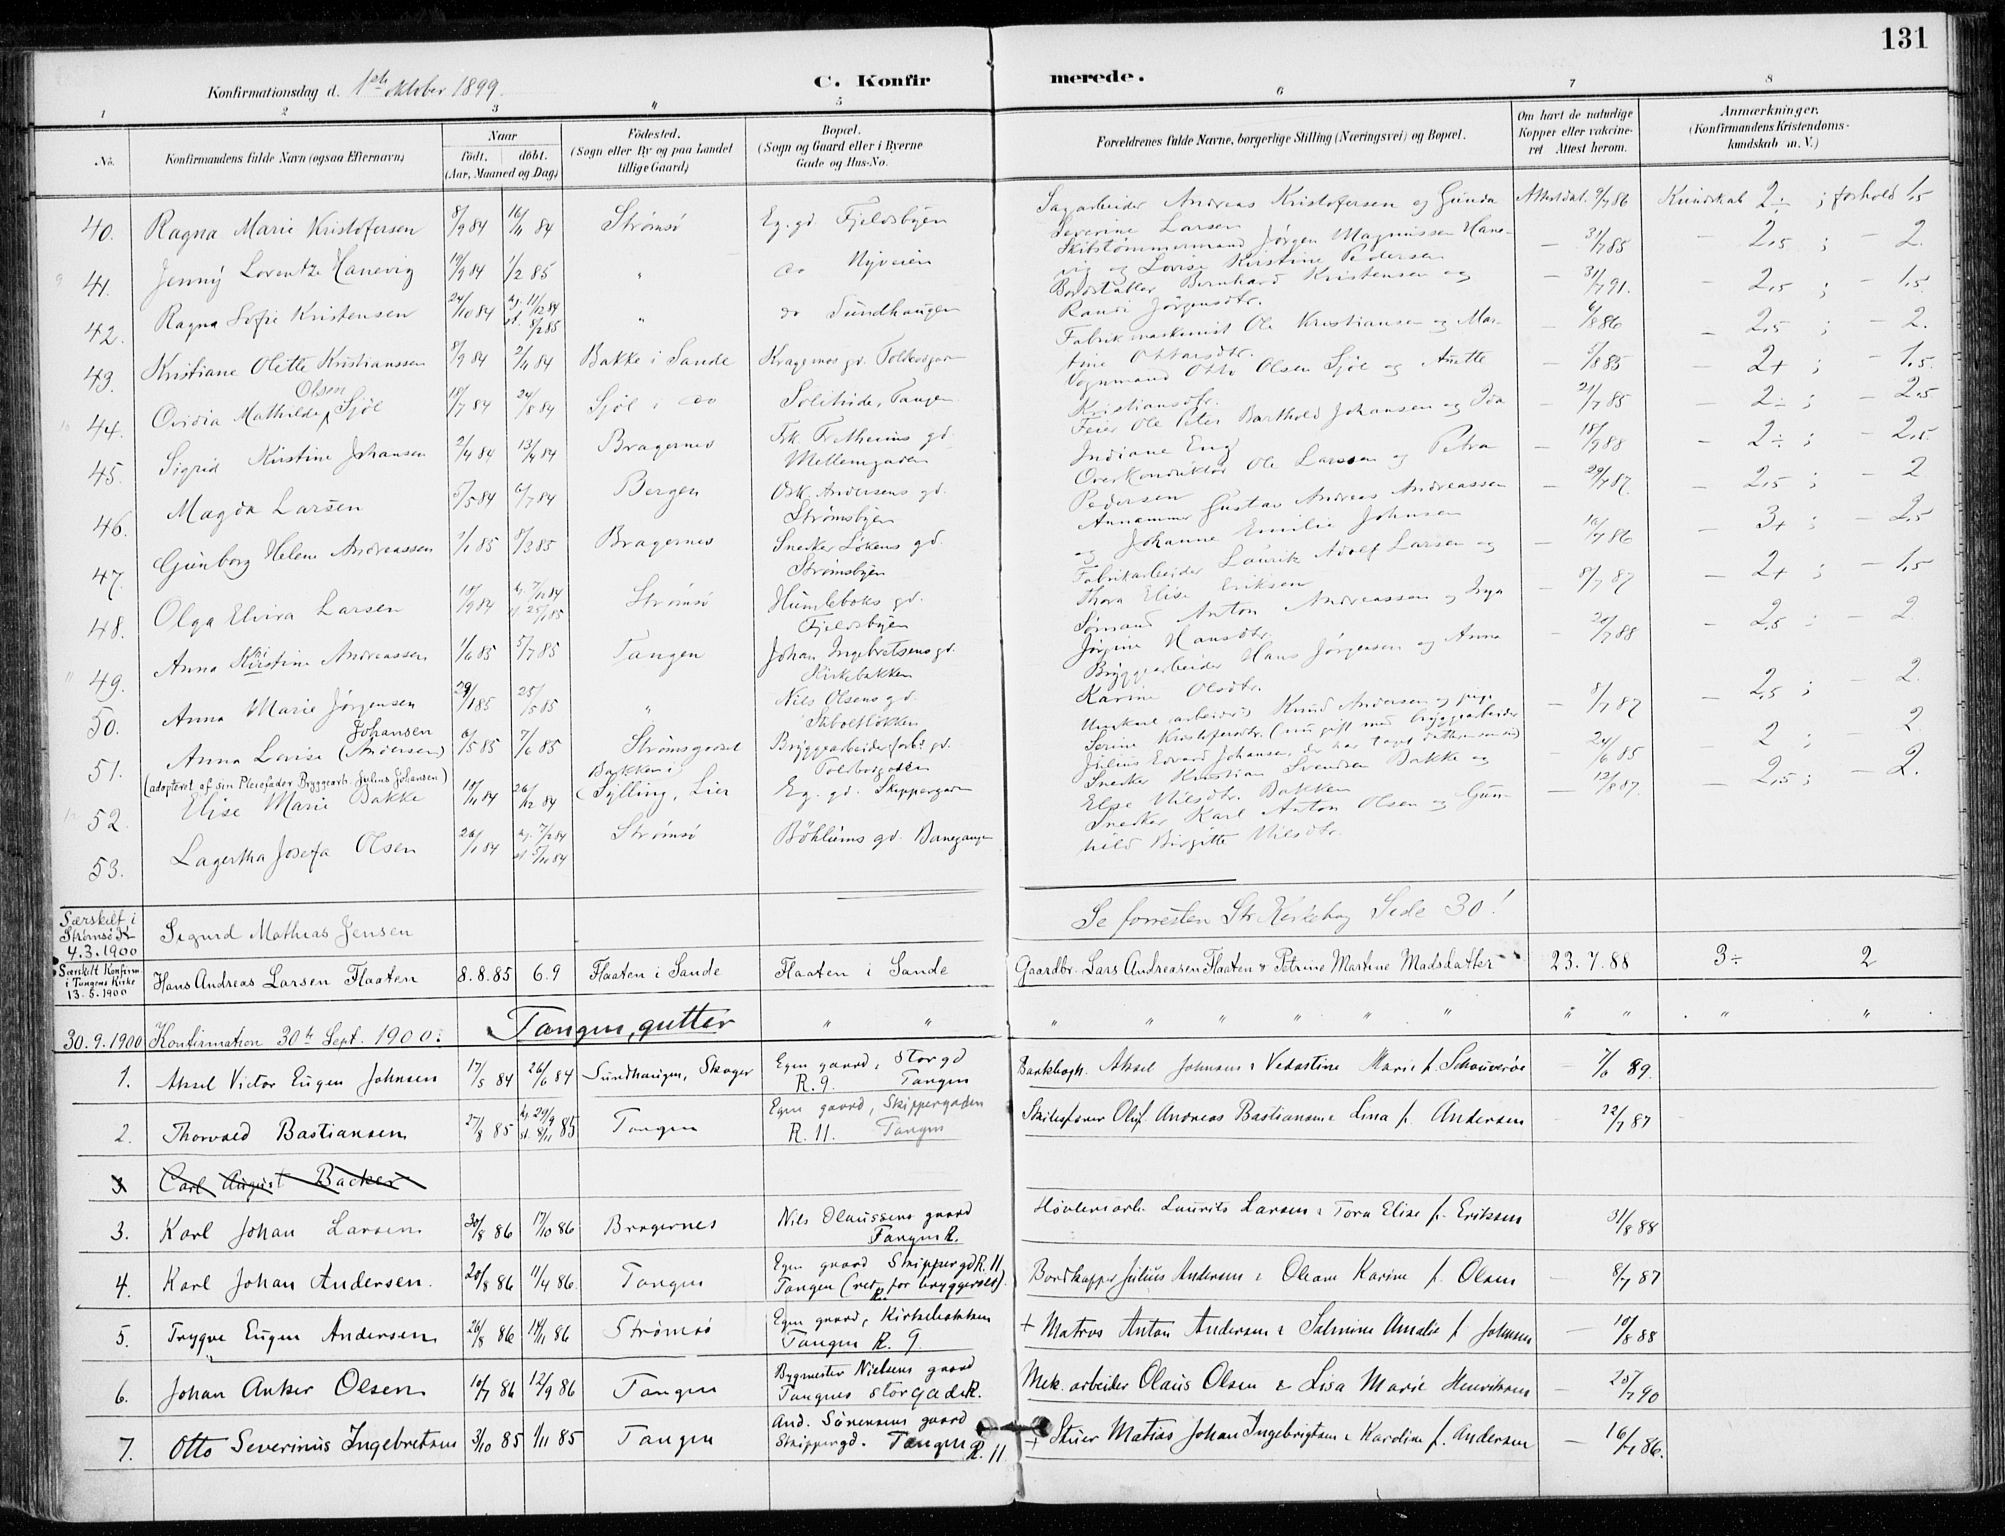 131
Konfirmationsdag d. 1ste Oktober 1899.
C. Konfirmerede.
1 2 3 " 5 6 7 8
No.
Konfirmandens fulde Navn (ogsaa Efternavn)
Naar
født. døbt.
(Aar, Maaned og Dag)
Fødested.
(Sogn eller By og paa Landet
tillige Gaard)
Bopæl.
(Sogn og Gaard eller i Byerne
Gade og Hus-No.
Forældrenes fulde Navne, borgerlige Stilling (Næringsvei) og Bopæl.
Om havt de naturlige
Kopper eller vakcine-
ret Attest herom.
Anmærkninger.
(Konfirmandens Kristendoms-
kundskab m. V.)
40. Ragna Marie Kristofersen 8/9 84 16/11 84 Strømsø Eg. gd. Fjeldsbyen Sagarbeider Andreas Kristofersen og Gunda Attest dat. 9/7 86 Kundskab 2÷ ; forhold 1,5
Severine Larsen
41. Jenny Lorentze Hanevig 19/9 84 1/2 85 " do Nyveien Skibstømmermand Jørgen Magnussen Hane- — 31/7 85 — 2,5 ; — 2.
vig og Lovise Kirstine Pedersen
42. Ragna Sofie Kristensen 24/10 84 hj. 11/12 84 " do Sundhaugen Bordstabler Bernhard Kristensen og — 31/7 91. — 2,5 ; — 1,5.
st. 8/2 85
Randi Jørgensdtr.
43. Kristiane Olette Kristianssen 8/9 84 2/11 84 Bakke i Sande Kragernes gd. Tolbodgaden Fabrikmaskinist Ole Kristiansen og Mar- — 6/8 86 — 2,5 ; — 2.
tine Ottarsdtr.
Olsen
44. Ovidia Mathilde Sjøl 18/7 84 24/8 84 Sjøl i do Solitude, Tangen Vognmand Otto Olsen Sjøl og Anette — 5/8 85 — 2+ ; — 1,5.
Kristiansdtr.
45. Sigrid Kirstine Johansen 2/4 84 13/4 84 Bragernes Frk. Fretheims gd. Feier Ole Peter Barthold Johansen og Ida — 21/7 85 — 2÷ ; — 2,5
Mellemgaden
Indiane Eng
46. Magda Larsen 5/5 84 6/7 84 Bergen Osk. Andersens gd. Overkonduktør Ole Larsen og Petra — 18/9 88 — 2÷ ; — 2,5.
Strømsbyen
Pedersen
47. Gunborg Helene Andreassen 1/1 85 8/3 85 Bragernes Snedker Løkens gd. Gustav Andreas Andreassen — 29/7 87. — 2,5 ; — 2
Strømsbyen
og Johanne Emilie Johnsen
48. Olga Elvira Larsen 18/9 84 hj. 7/11 84 Strømsø Humleboks gd. Fabrikarbeider Laurits Adolf Larsen og — 10/7 86 — 3+ ; — 2,5
st. 25/1 85 Fjeldsbyen
Thora Elise Eriksen
49. Anna Kirstine Andreassen 1/6 85 5/7 85 Tangen Johan Ingebretsens gd. Sømand Anton Andreassen og Inga — 8/7 87 — 2+ ; — 1,5
Kirkebakken
Jørgine Hansdtr.
50. Anna Marie Jørgensen 29/1 85 25/5 85 " Nils Olsens gd. Bryggearbeider Hans Jørgensen og Anna — 20/7 88 — 2,5 ; — 2.
Karine Olsdtr.
Johansen
51. Anna Lovise (Andersen) 6/5 85 7/6 85 Strømsgodset Bryggearbeider gd. Ungkarl arbeider Knud Andersen og pige — 8/7 87 — 2,5 ; — 2.
Tolbodgaden
Serine Kristofersdtr. (nu gift med bryggearbeider
(adopteret af sin Pleiefader Bryggearb. Julius Johansen)
Julius Edvard Johansen, der har taget
52. Elise Marie Bakke 18/11 84 26/12 84 Bakken i Eg. gd. Skippergaden Snedker Kristian Svendsen Bakke og — 24/6 85 — 2 ; — 2.
Sylling, Lier
Else Nilsdtr. Bakken
53. Lagertha Josefa Olsen 26/1 84 hj. 7/2 84 Strømsø Böhlums gd. Bernegangen Snedker Karl Anton Olsen og Gun- — 12/8 87. — 2,5 ; — 2.
st. 5/10 84
hild Birgitte Nilsdtr.
Særskilt i
Strømsø K.
4.3.1900
Sigurd Mathias Jensen Se forresten Str. Kirkebog Side 30!
Særskilt Konfirm.
i Tangens Kirke
13.5.1900
Hans Andreas Larsen Flaaten 8.8.85 6.9 Flaaten i Sande Flaaten i Sande Gaardbr. Lars Andreasen Flaaten & Petrine Martine Madsdatter 23.7.88 3÷ 2
30.9.1900 Konfirmation 30te Sept. 1900: Tangen, gutter
1. Aksel Victor Eugen Johnsen 17/5 84 26/6 84 Sundhaugen, Skoger Egen gaard, Storgd Barkbogh. Aksel Johnsen & Vedastine Marie f. Schouverøe — 7/6 89.
R. 9. Tangen
2. Thorvald Bastiansen 27/8 85 hj. 29/9 85 Tangen Egen gaard, Skippergaden Skibsfører Oluf Andreas Bastiansen & Lina f. Andersen — 22/7 87
st. 8/11 R. 11. Tangen
3 Carl August Backer
3. Karl Johan Larsen 30/8 86 17/10 86 Bragernes Nils Olaussens gaard Høvleriarb. Laurits Larsen & Tora Elise f. Eriksen 31/8 88
Tangen R.
4. Karl Johan Andersen. 20/8 86 11/4 86. Tangen Egen gaard Skippergd R. 11 Bordkapper Julius Andersen & Oleane Karine f. Olsen — 8/7 87
Tangen (ret for bryggeriet).
5. Trygve Eugen Andersen 26/8 86 14/11 86 Strømsø Egen gaard, Kirkebakken + Matros Anton Andersen & Salmine Amalie f. Johnsen — 10/8 88
Tangen R. 9
6. Johan Anker Olsen 10/7 86 12/9 86 Tangen Bygmester Nielsens gaard Mek. arbeider Olaus Olsen & Lisa Marie Henriksen — 25/7 90
Tangens Storgade R.
7. Otto Severinus Ingebretsen 3/10 85 1/11 85 Tangen And. Sørensens gaard + Stuer Matias Johan Ingebrigtsen & Karoline f. Andersen — 16/7 86.
Skippergd. Tangen R. 11